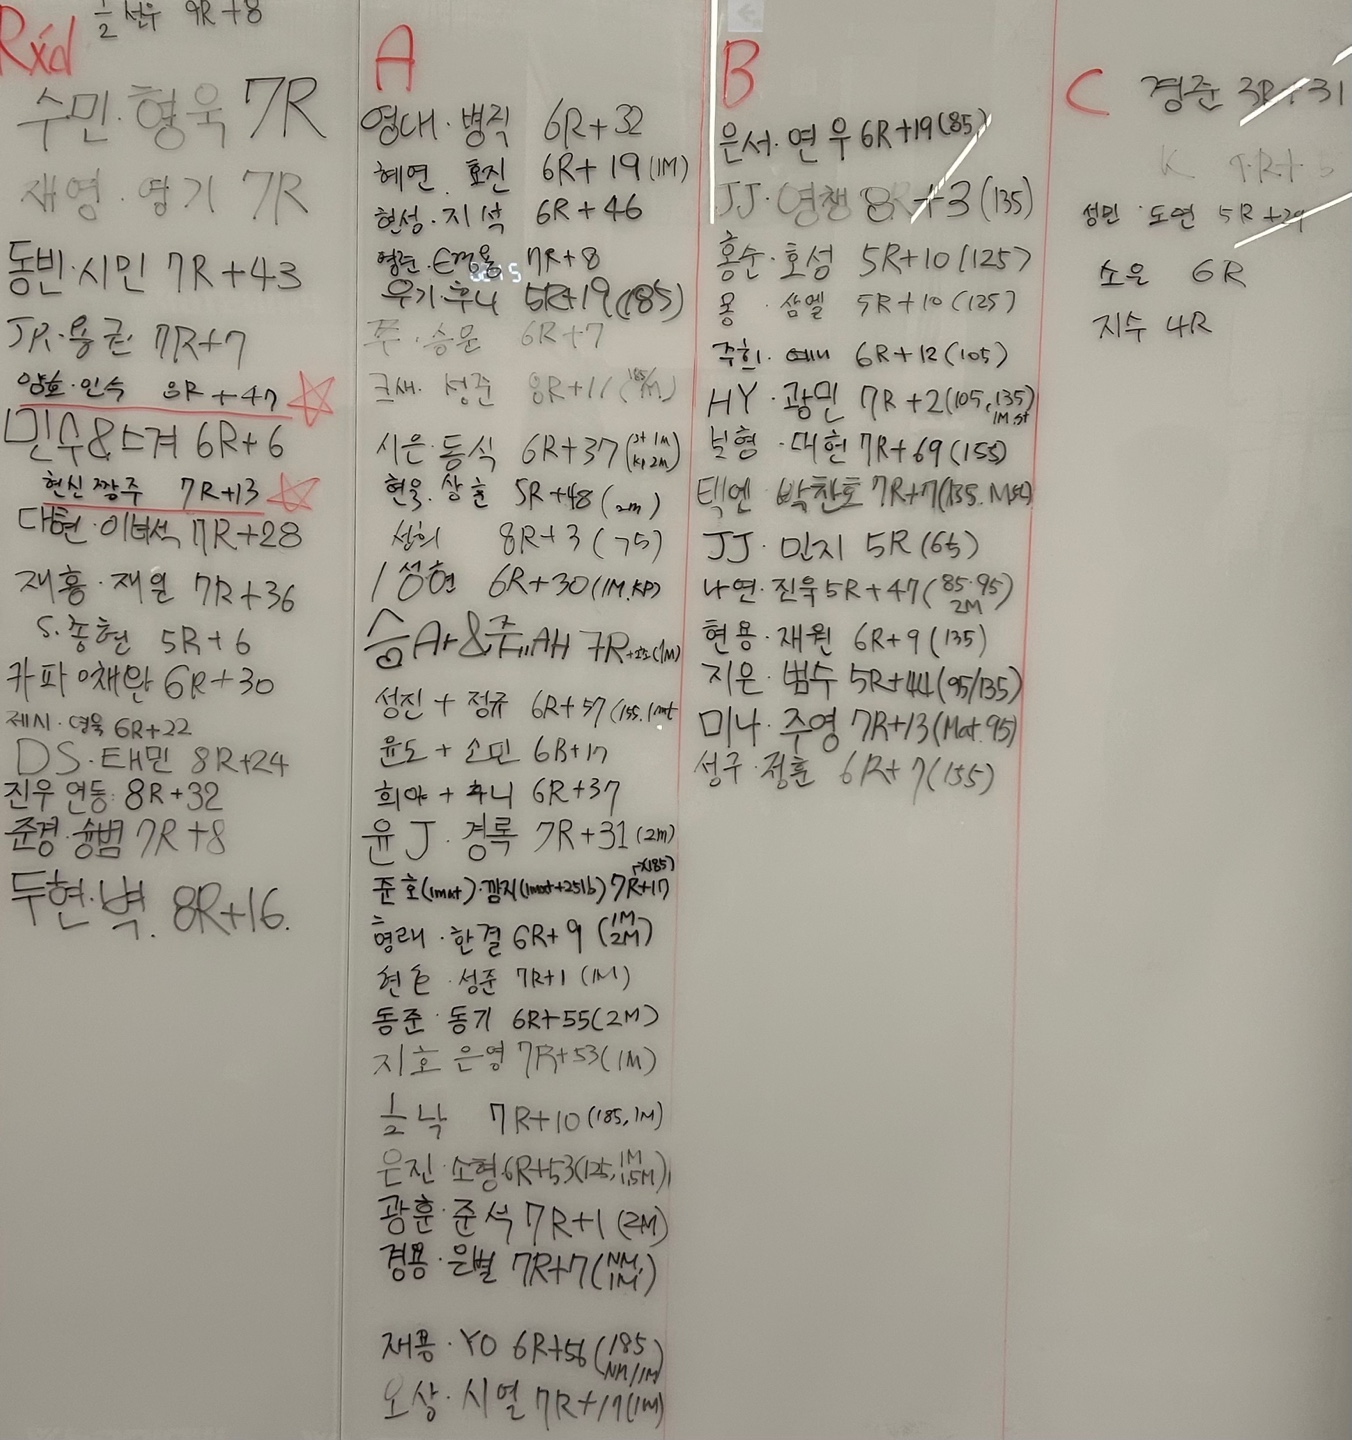 Rx'd
1/2 선우 9R+8
수민·형욱 7R
재영·영기 7R
동빈·시민 7R+43
JR·용근 7R+7
양호·인숙 8R+47
민수&스겨 6R+6
현신 짱주 7R+13
대현·이녀석 7R+28
재홍·재원 7R+36
S.종현 5R+6
카파 이채완 6R+30
제시·영욱 6R+22
DS·태민 8R+24
진우 연동 8R+32
준경·슝범 7R+8
두현·벽. 8R+16.
A
영대·병직 6R+32
혜연 효진 6R+19(1M)
현성·지석 6R+46
7R+8
우기·후니 5R+19(185)
쭈·승윤 6R+7
크새·성준 8R+11
시은·동식 6R+37
현욱·상훈 5R+48(2m)
상희 8R+3(75)
성현 6R+30(1M.KP)
7R
성진+정규 6R+57(155.1mat
윤도+소민 6R+17
희야+쭈니 6R+37
윤J·경록 7R+31(2m)
준호(1mat)·깜지(1mat+25lb) 7R+17 (185)
형래·한결 6R+9 (1M 2M)
성준 7R+1 (1M)
동준·동기 6R+55(2M)
지호 은영 7R+53(1M)
1/2 낙 7R+10(185,1M)
은진·소형 6R+53(125, 1M 1.5M)
광훈·준석 7R+1(2M)
경용·은별 7R+7(NM, 1M)
재용·YO 6R+56(185 NM/1M)
오상·시열 7R+17(1M)
B
은서·연우 6R+19(85)
JJ·영챙 8R+3(135)
홍순·호성 5R+10(125)
몽·삼엘 5R+10(125)
주희·예니 6R+12(105)
HY·광민 7R+2(105,135) 1M st
보형·대헌 7R+69(155)
텍엔·박찬호 7R+7(135.
JJ·민지 5R(65)
나연·진욱 5R+47(85·95 2M)
현용·재원 6R+9(135)
지은·범수 5R+44(95/135)
미나·주영 7R+13(Mat.95)
성구·정훈 6R+7(155)
C
경준 3R+31
성민·도연 5R+29
소윤 6R
지수 4R